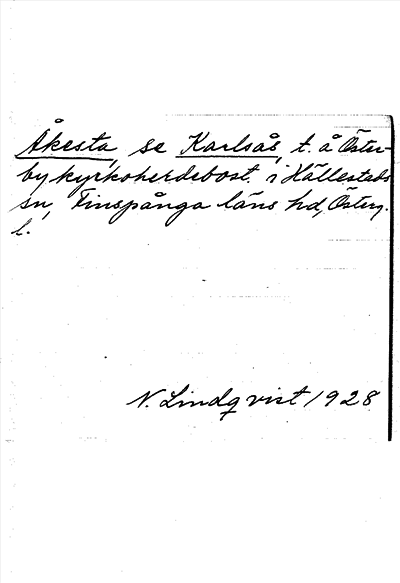 Åkesta, se Karlsås, t. å Öster-
by kyrkoherdebost. i Hällestads
sn, Finspånga läns hd, Österg.
l.
N. Lindqvist 1928